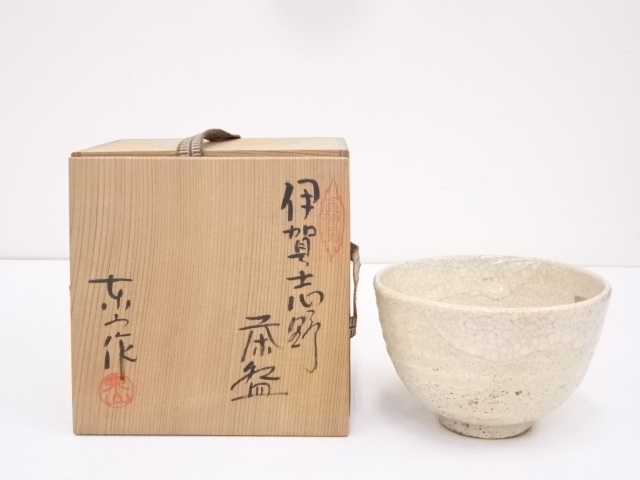 伊賀志野
茶盌
東山作